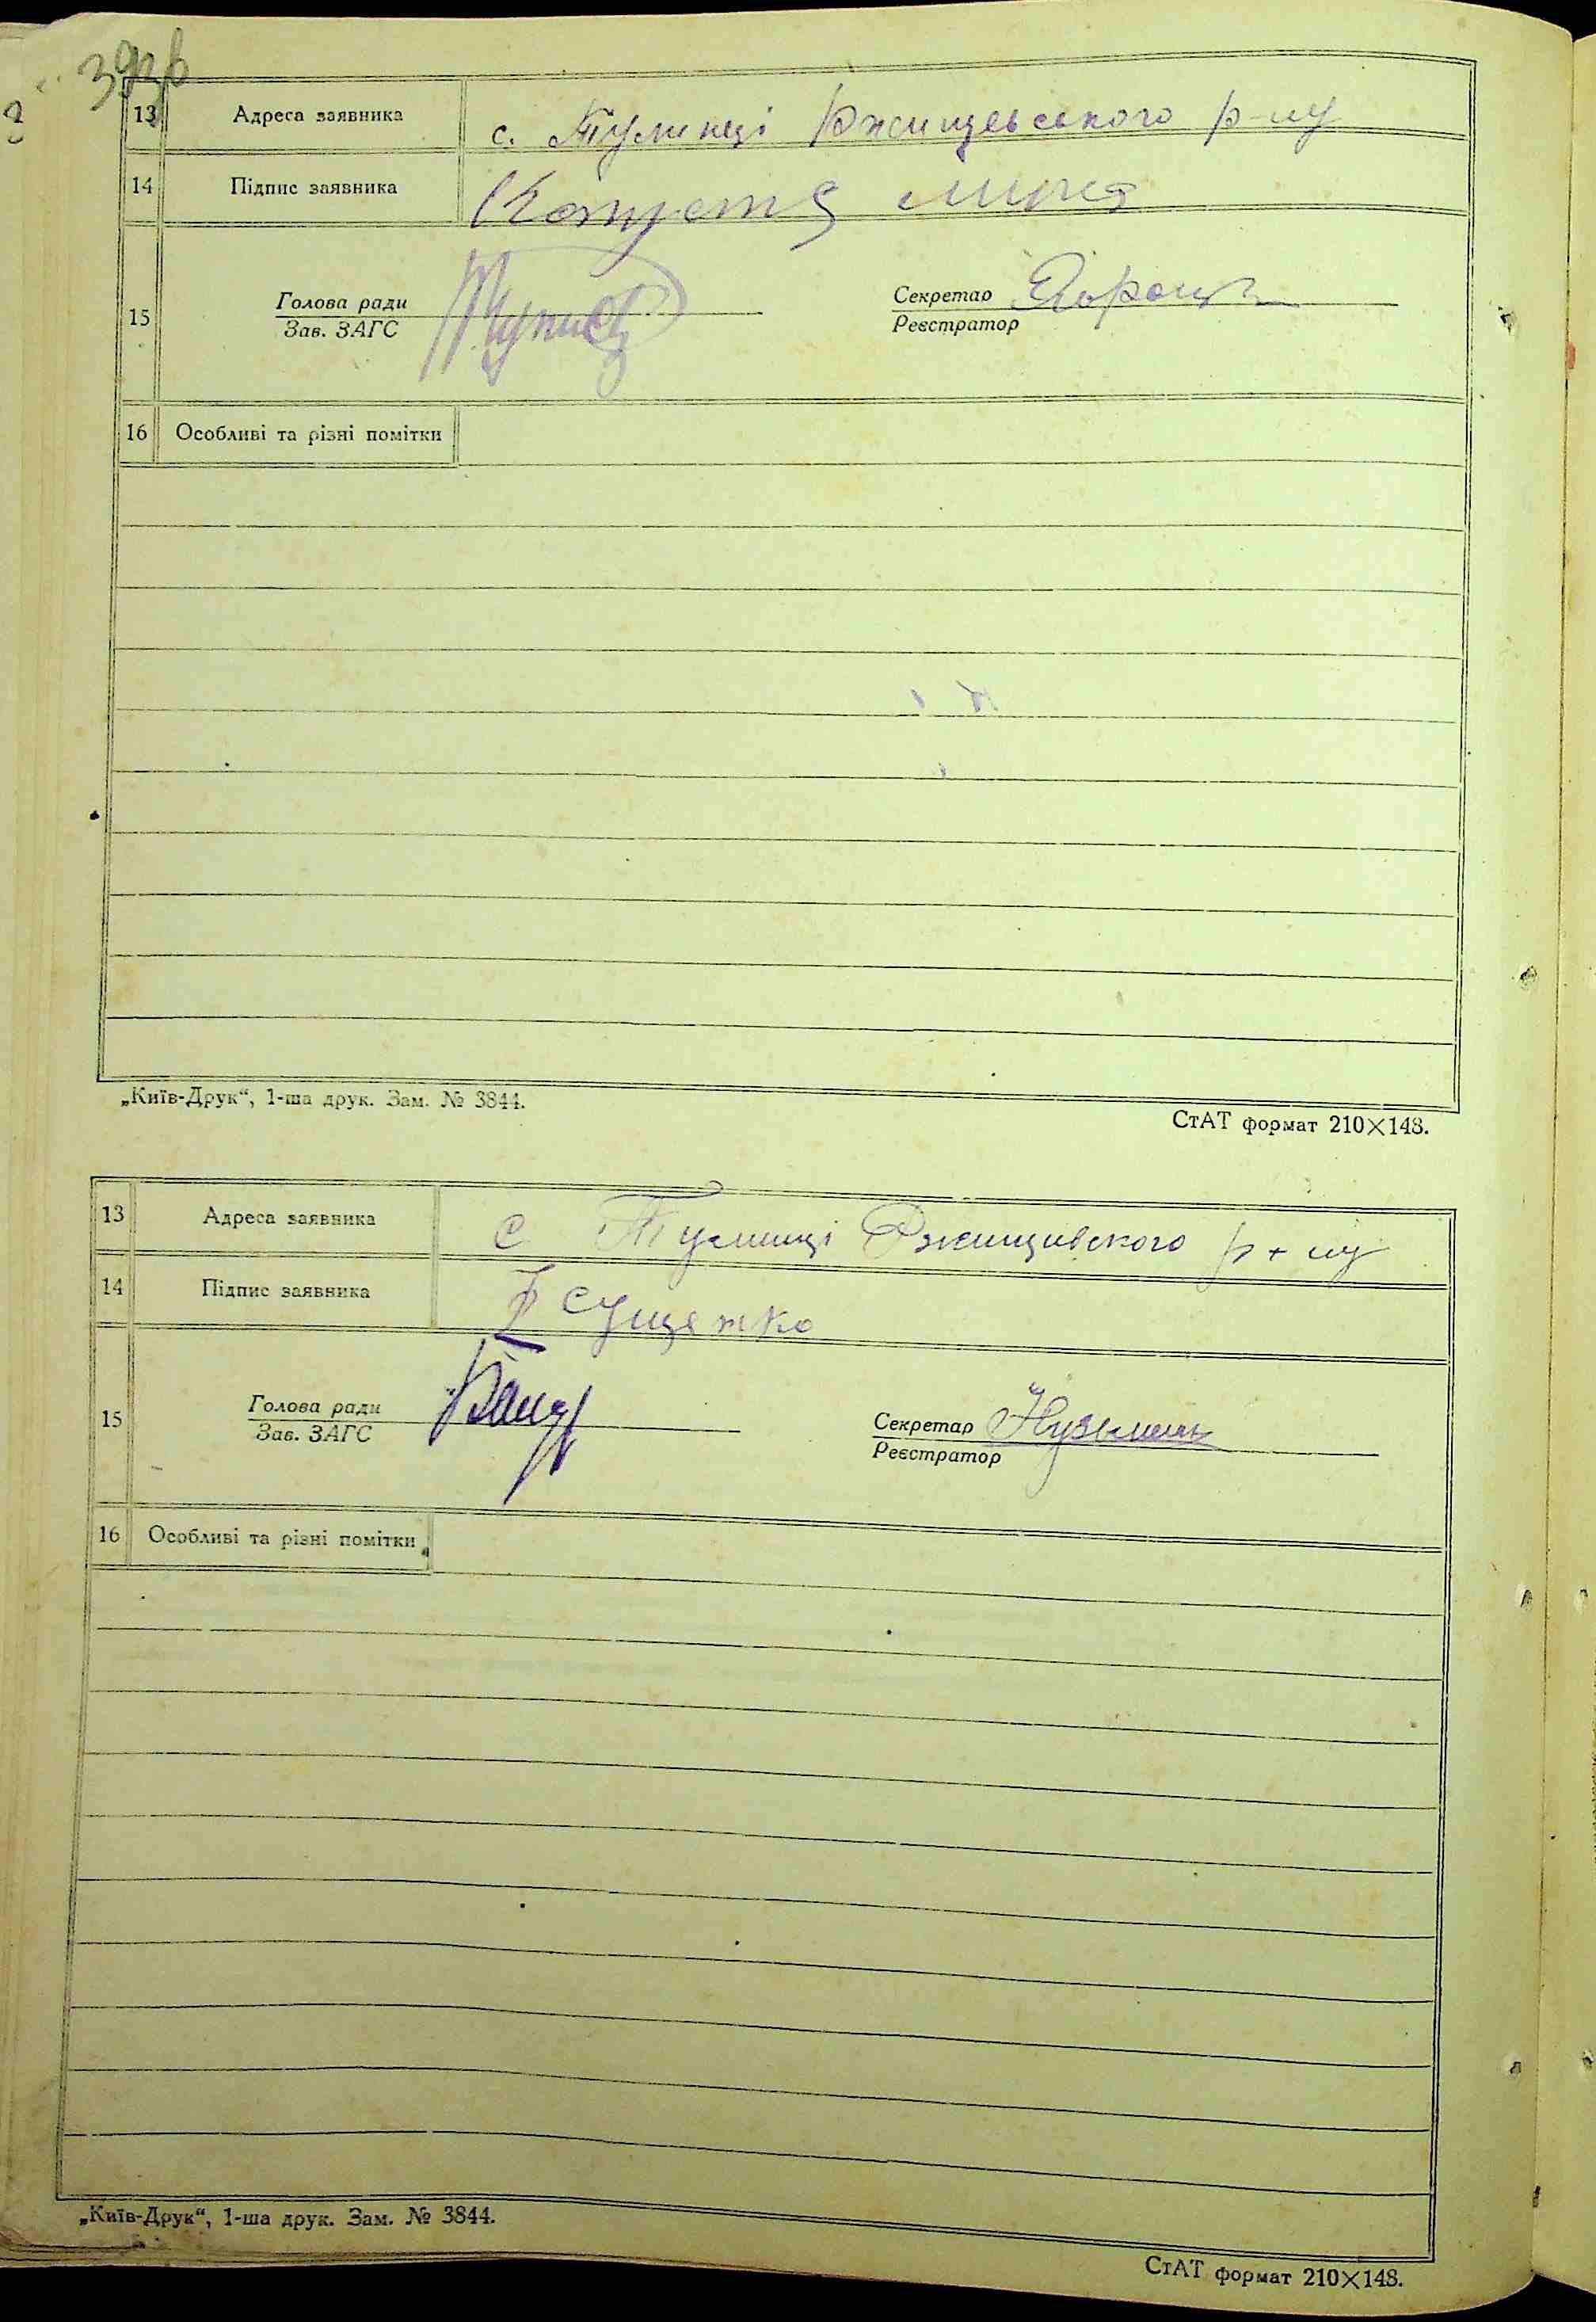 13 Адреса заявника с. Тулинці Ржищевського р-ну
14 Підпис заявника Капуста
15 Голова ради Секретар
Зав. ЗАГС Реєстратор
16 Особливі та різні помітки
„Київ-Друк“, 1-ша друк. Зам. № 3844.
СтАТ формат 210×148.
13 Адреса заявника с Тулинці Ржищивского р-ну
14 Підпис заявника Сущенко
15 Голова ради Секретар Кузьменко
Зав. ЗАГС Реєстратор
16 Особливі та різні помітки
„Київ-Друк“, 1-ша друк. Зам. № 3844.
СтАТ формат 210×148.